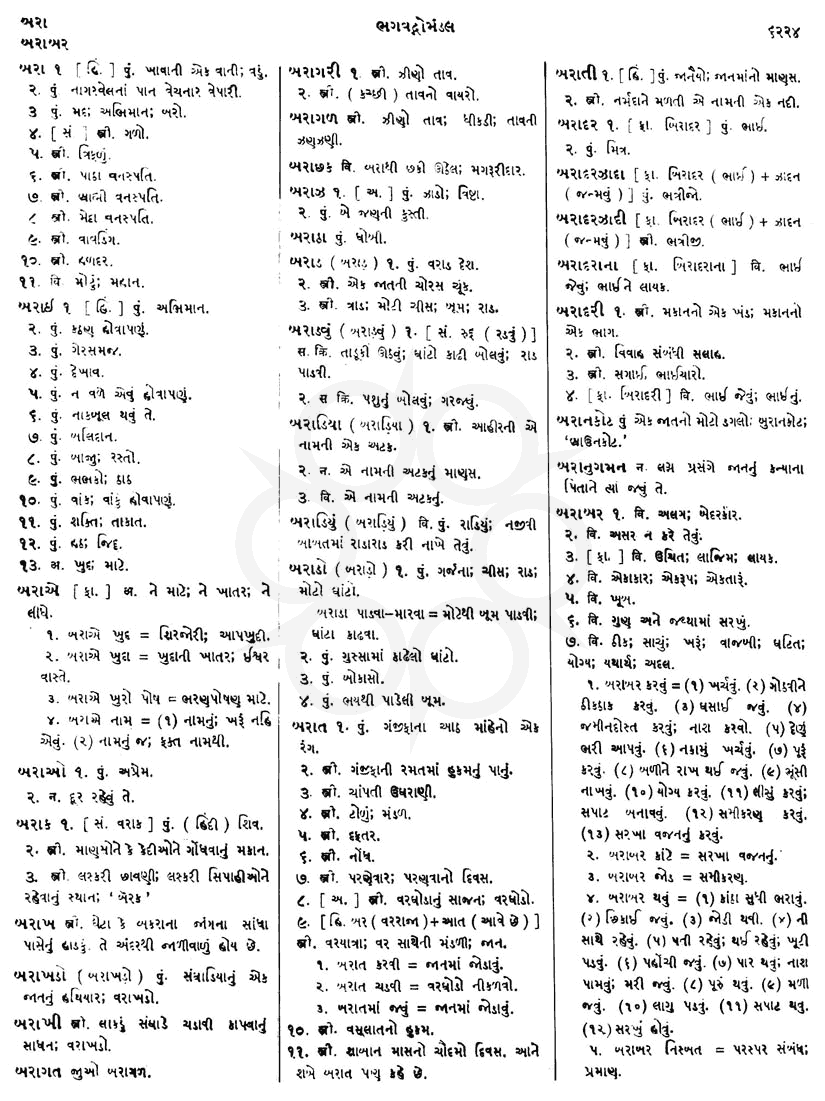 બરા
બરાબર
ભગવદ્ગોમંડલ
૬૨૨૪
બરા ૧ [ હિં. ] પું. ખાવાની એક વાની; વડું.
૨. પું નાગરવેલનાં પાન વેચનાર વેપારી.
૩ પું મદ; અભિમાન; બરો.
૪. [ સં ] સ્ત્રી. ગળો.
૫. સ્ત્રી. ત્રિફળું.
૬. સ્ત્રી. પાઠા વનસ્પતિ.
૭. સ્ત્રી. બ્રાહ્મી વનસ્પતિ.
૮ સ્ત્રી. મેદા વનસ્પતિ.
૯. સ્ત્રી. વાવડિંગ.
૧૦. સ્ત્રી. હળદર.
૧૧. વિ મોટું; મહાન.
બરાઈ ૧ [ હિં. ] પું. અભિમાન.
૨. પું. કઠણ હોવાપણું.
૩. પું. ગેરસમજ.
૪. પું. દેખાવ.
૫. પું. ન વળે એવું હોવાપણું.
૬. પું. નાકબૂલ થવું તે.
૭. પું. બલિદાન.
૮. પું. બાજુ; રસ્તો.
૯. પું. ભભકો; ઠાઠ
૧૦. પું. વાંક; વાંકું હોવાપણું.
૧૧. પું. શક્તિ; તાકાત.
૧૨. પું. હઠ; જિદ્દ.
૧૩. અ. ખુદ; માટે.
બરાએ [ ફા. ] અ. ને માટે; ને ખાતર; ને
લીધે.
૧. બરાએ ખુદ = શિરજોરી; આપખુદી.
૨. બરાએ ખુદા = ખુદાની ખાતર; ઈશ્વર
વાસ્તે.
૩. બરાએ ખુરો પોષ = ભરણપોષણ માટે.
૪. બરાએ નામ = (૧) નામનું; ખરૂં નહિ
એવું. (૨) નામનું જ; ફક્ત નામથી.
બરાઓ ૧. પું. અપ્રેમ.
૨. ન. દૂર રહેવું તે.
બરાક ૧. [ સં. વરાક ] પું. ( હિંદી ) શિવ.
૨. સ્ત્રી. માણસોને કે કેદીઓને ગોંધવાનું મકાન.
૩. સ્ત્રી. લશ્કરી છાવણી; લશ્કરી સિપાહીઓને
રહેવાનું સ્થાન; ‘ બૅરક ’
બરાખ સ્ત્રી. ઘેટા કે બકરાના જાંગના સાંધા
પાસેનું હાડકું. તે અંદરથી જાળીવાળું હોય છે.
બરાખડો ( બરાખડ઼ો ) પું. સંઘાડિયાનું એક
જાતનું હથિયાર; વરાખડો.
બરાખી સ્ત્રી. લાકડું સંઘાડે ચડાવી કાપવાનું
સાધન; વરાખડો.
બરાગત જુઓ બરાગળ.
બરાગરી ૧. સ્ત્રી. ઝીણો તાવ.
૨. સ્ત્રી. ( કચ્છી ) તાવનો વાયરો.
બરાગળ સ્ત્રી. ઝીણો તાવ; ધીકડી; તાવની
ઝણઝણી.
બરાછક વિ. બરાથી છકી ઊઠેલ; મગરૂરીદાર.
બરાઝ ૧. [ અ. ] પું. ઝાડો; વિષ્ટા.
૨. પું. બે જણની કુસ્તી.
બરાઠા પું. ધોબી.
બરાડ ( બરાડ઼ ) ૧. પું. વરાડ દેશ.
૨. સ્ત્રી. એક જાતની ચોરસ ચૂંક.
૩. સ્ત્રી. ત્રાડ; મોટી ચીસ; બૂમ; રાડ.
બરાડવું ( બરાડ઼વું ) ૧. [ સં. રુદ્ ( રડવું ) ]
સ. ક્રિ. તાડૂકી ઊઠવું; ઘાંટો કાઢી બોલવું; રાડ
પાડવી.
૨. સ ક્રિ. પશુનું બોલવું; ગરજવું.
બરાડિયા ( બરાડ઼િયા ) ૧. સ્ત્રી. આહીરની એ
નામની એક અટક.
૨. ન. એ નામની અટકનું માણસ.
૩. વિ. એ નામની અટકનું.
બરાડિયું ( બરાડ઼િયું ) વિ. પું. રાડિયું; નજીવી
બાબતમાં રાડારાડ કરી નાખે તેવું.
બરાડો ( બરાડ઼ો ) ૧. પું. ગર્જના; ચીસ; રાડ;
મોટો ઘાંટો.
બરાડા પાડવા-મારવા = મોટેથી બૂમ પાડવી;
ઘાંટા કાઢવા.
૨. પું. ગુસ્સામાં કાઢેલો ઘાંટો.
૩. પું. બોકાસો.
૪. પું. ભયથી પાડેલી બૂમ.
બરાત ૧. પું. ગંજીફાના આઠ માંહેનો એક
રંગ.
૨. સ્ત્રી. ગંજીફાની રમતમાં હુકમનું પાનું.
૩. સ્ત્રી. ચાંપતી ઉઘરાણી.
૪. સ્ત્રી. ટોળું; મંડળ.
૫. સ્ત્રી. દફતર.
૬. સ્ત્રી. નોંધ.
૭. સ્ત્રી. પરણેવાર; પરણવાનો દિવસ.
૮. [ અ. ] સ્ત્રી. વરઘોડાનું સાજન; વરઘોડો.
૯. [ હિં. બર ( વરરાજા ) + આત ( આવે છે ) ]
સ્ત્રી. વરયાત્રા; વર સાથેની મંડળી; જાન.
૧. બરાત કરવી = જાનમાં જોડાવું.
૨. બરાત ચડવી = વરઘોડો નીકળવો.
૩. બરાતમાં જવું = જાનમાં જોડાવું.
૧૦. સ્ત્રી. વસૂલાતનો હુકમ.
૧૧. સ્ત્રી. શાબાન માસનો ચૌદમો દિવસ. આને
શબે બરાત પણ કહે છે.
બરાતી ૧. [ હિં. ] પું. જાનૈયો; જાનમાંનો માણસ.
૨. સ્ત્રી. નર્મદાને મળતી એ નામની એક નદી.
બરાદર ૧. [ ફા. બિરાદર ] પું. ભાઈ.
૨. પું. મિત્ર.
બરાદરઝાદા [ ફા. બિરાદર ( ભાઈ ) + ઝાદન
( જન્મવું ) ] પું. ભત્રીજો.
બરાદરઝાદી [ ફા. બિરાદર ( ભાઈ ) + ઝાદન
( જન્મવું ) ] સ્ત્રી. ભત્રીજી.
બરાદરાના [ ફા. બિરાદરાના ] વિ. ભાઈ
જેવું; ભાઈને લાયક.
બરાદરી ૧. સ્ત્રી. મકાનનો એક ખંડ; મકાનનો
એક ભાગ.
૨. સ્ત્રી. વિવાહ સંબંધી સલાહ.
૩. સ્ત્રી. સગાઈ, ભાઈચારો.
૪. [ ફા. બિરાદરી ] વિ. ભાઈ જેવું; ભાઈનું.
બરાનકોટ પું એક જાતનો મોટો ડગલો; બુરાનકોટ;
‘બ્રાઉનકોટ.’
બરાનુગમન ન. લગ્ન પ્રસંગે જાનનું કન્યાના
પિતાને ત્યાં જવું તે.
બરાબર ૧. વિ. અલગ; બેદરકાર.
૨. વિ. અસર ન કરે તેવું.
૩. [ ફા. ] વિ. ઉચિત; લાજિમ; લાયક.
૪. વિ. એકાકાર; એકરૂપ; એકતારૂં.
૫. વિ. ખૂબ.
૬. વિ. ગુણ અને જથ્થામાં સરખું.
૭. વિ. ઠીક; સાચું; ખરૂં; વાજબી; ઘટિત;
યોગ્ય; યથાર્થ; અદલ.
૧. બરાબર કરવું = (૧) ખર્ચવું. (૨) ગોઠવીને
ઠીકઠાક કરવું. (૩) ઘસાઈ જવું. (૪)
જમીનદોસ્ત કરવું; નાશ કરવો. (૫) દેણું
ભરી આપવું. (૬) નકામું ખર્ચવું. (૭) પૂરૂં
કરવું. (૮) બળીને રાખ થઈ જવું. (૯) ભૂંસી
નાખવું. (૧૦) યોગ્ય કરવું. (૧૧) લીસું કરવું;
સપાટ બનાવવું. (૧૨) સમીકરણ કરવું.
(૧૩) સરખા વજનનું કરવું.
૨. બરાબર કાંટે = સરખા વજનનું.
૩. બરાબર જોડ = સમીકરણ.
૪. બરાબર થવું = (૧) કાંઠા સુધી ભરાવું.
(૨) છિકાઈ જવું. (૩) જોડી થવી. (૪) ની
સાથે રહેવું. (૫) પતી રહેવું; થઈ રહેવું; ખૂટી
પડવું. (૬) પહોંચી જવું. (૭) પાર થવું; નાશ
પામવું; મરી જવું. (૮) પૂરું થવું. (૯) મળી
જવું. (૧૦) લાગુ પડવું. (૧૧) સપાટ થવું.
(૧૨) સરખું હોવું.
૫. બરાબર નિસ્બત = પરસ્પર સંબંધ;
પ્રમાણ.